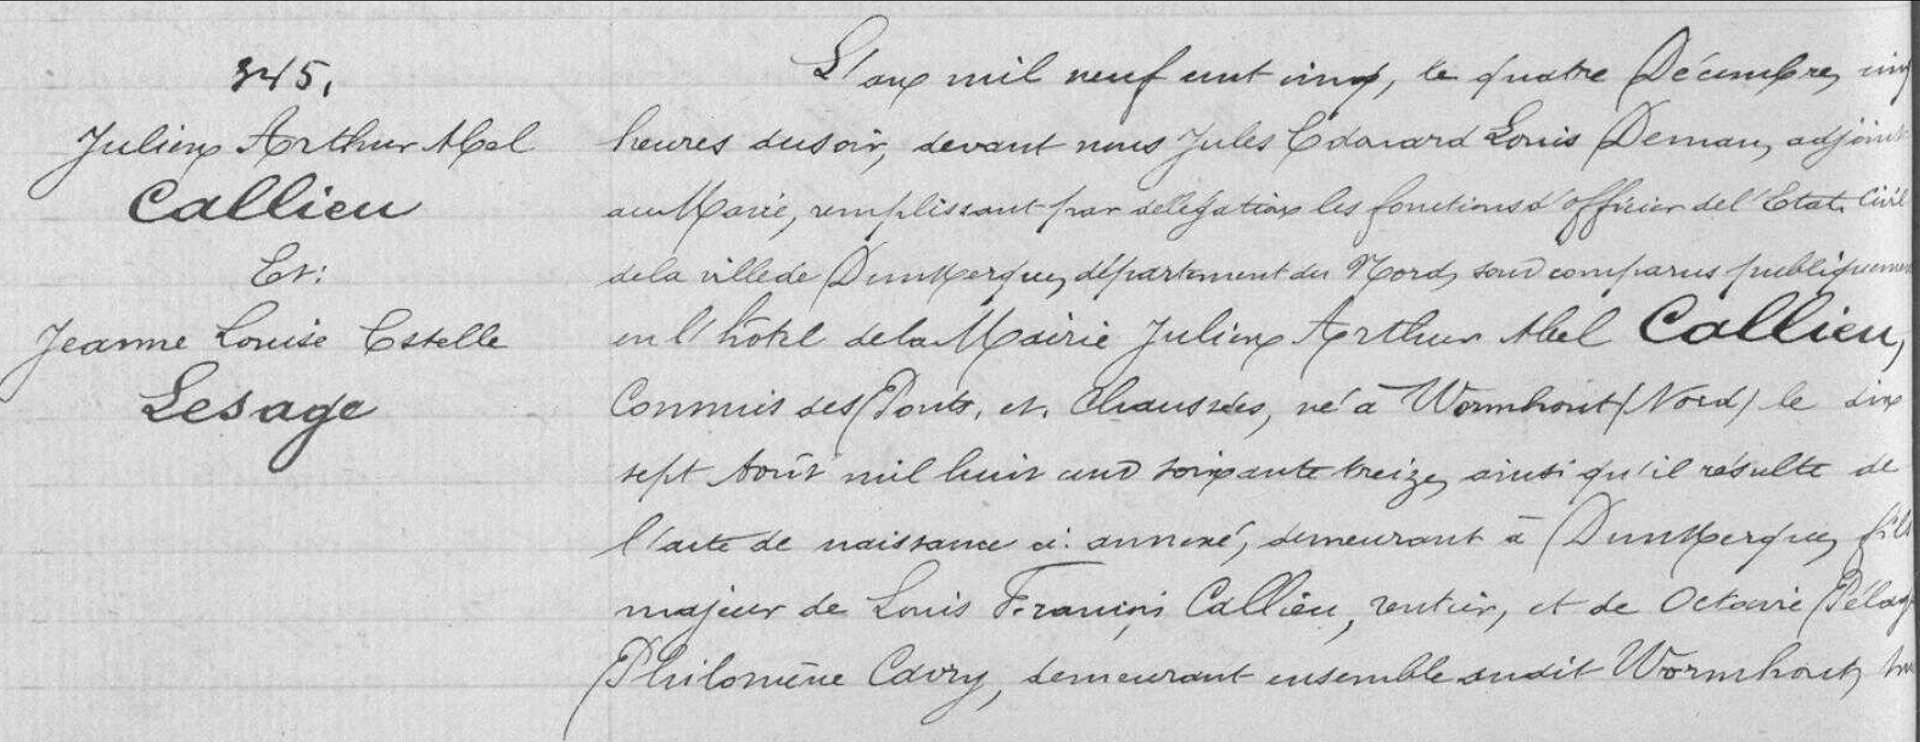 345.
Julien Arthur Abel
Callieu
Et:
Jeanne Louise Estelle
Lesage
L'an mil neuf cent cinq, le quatre Décembre, cinq
heures du soir, devant nous Jules Edouard Louis Deman, adjoint
au Maire, remplissant par délégation les fonctions d'officier de l'Etat Civil
de la ville de Dunkerque, département du Nord, sont comparus publiquement
en l'hôtel de la Mairie Julien Arthur Abel Callieu,
Commis des Ponts. et. Chaussées, né à Wormhout (Nord) le dix
sept Août mil huit cent soixante treize, ainsi qu'il résulte de
l'acte de naissance ci. annexé, demeurant à Dunkerque, fils
majeur de Louis François Callieu, rentier, et de Octavie Pélag
Philomène Cavry, demeurant ensemble audit Wormhout,